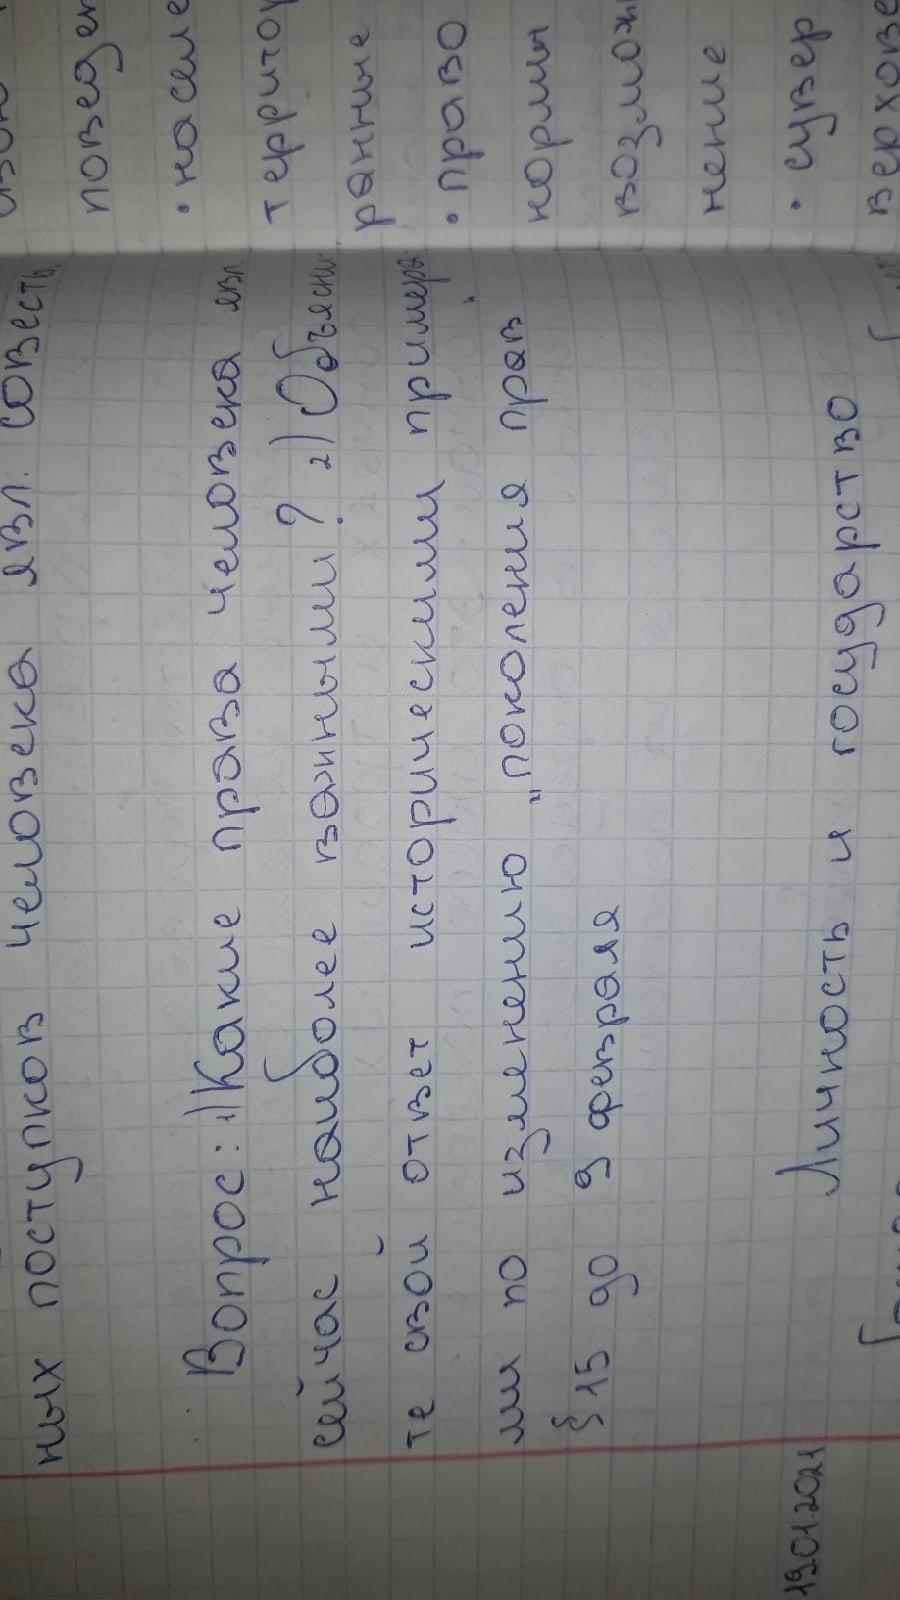 ных поступков человека явл. совесть.
Вопрос: 1) Какие права человека явл.
сейчас наиболее важными? 2) Объясни-
те свой ответ историческими примера-
ми по изменению "поколения прав"
§ 15 до 9 февраля
19.01.2021
Личность и государство
поведен
• населе
территор
ранние
• право
нормы
возмож
нение
• сувер
верхове